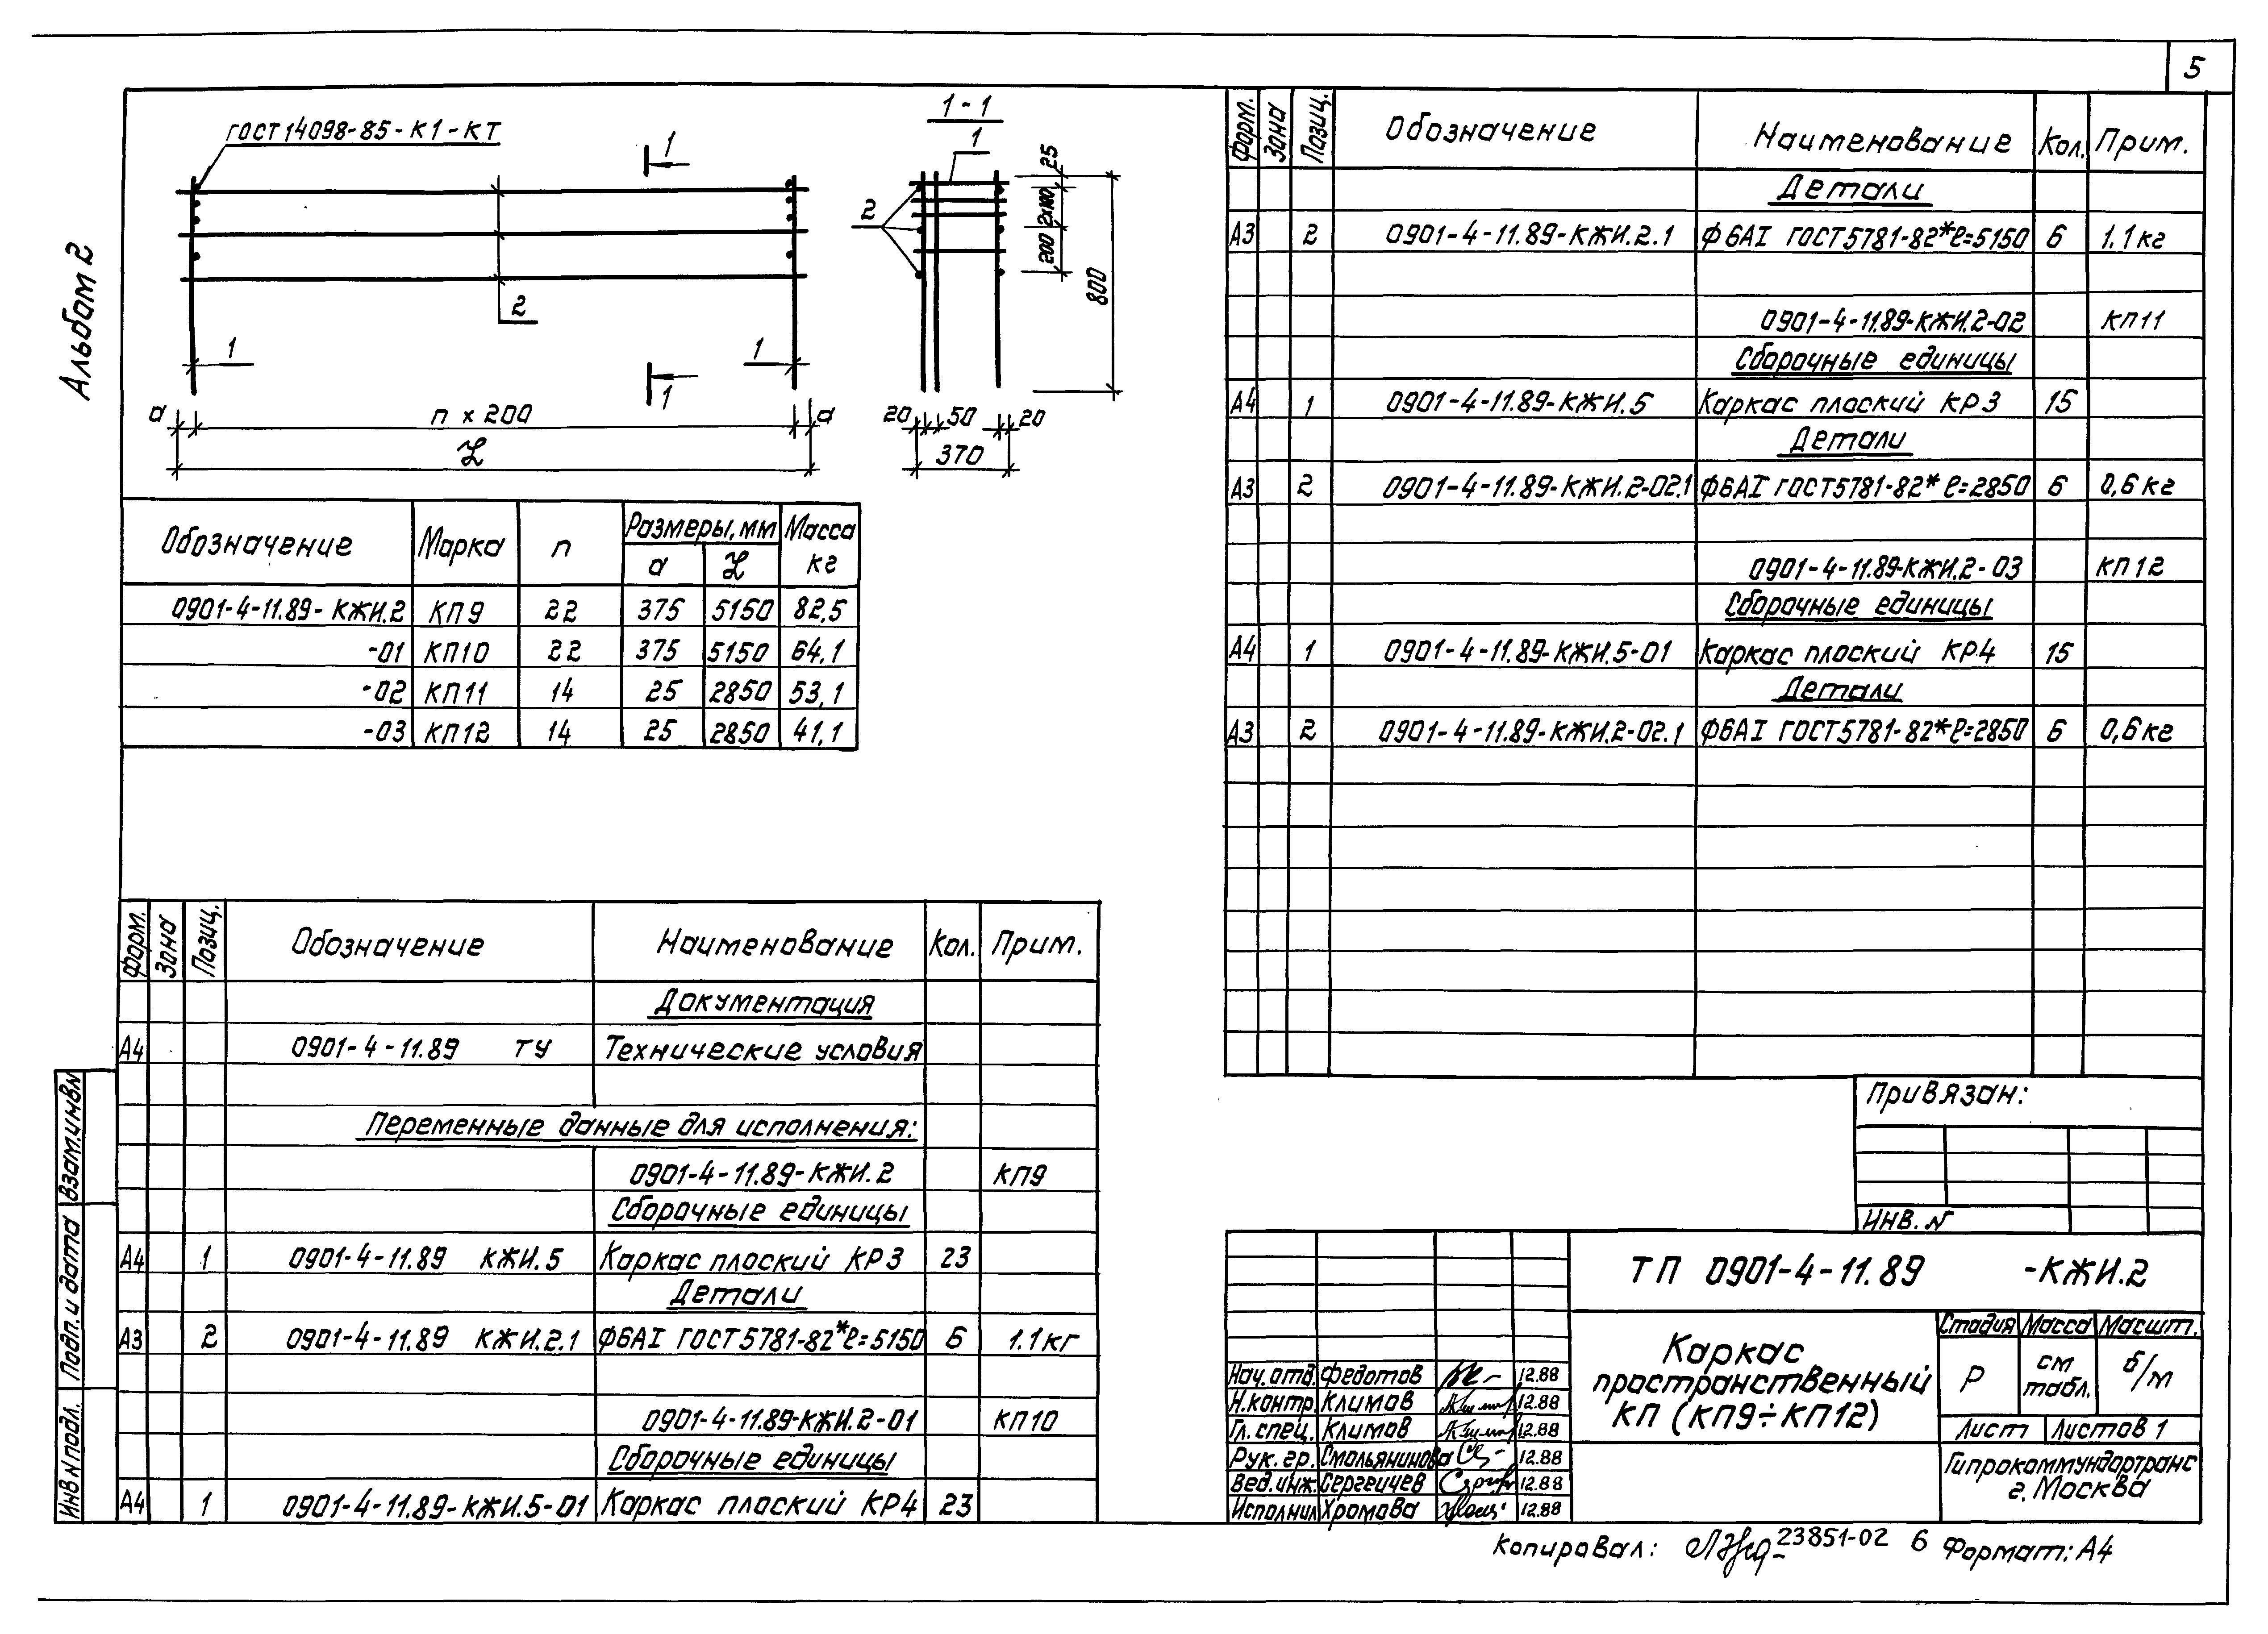 5
Альбом 2
ГОСТ 14098-85-К1-КТ
1
1
2
1
1
а
n x 200
а
L
1-1
1
2
25
2х100
200
800
20
50
20
370
Обозначение Марка n Размеры, мм Масса кг
а L
0901-4-11.89-КЖИ.2 КП9 22 375 5150 82,5
-01 КП10 22 375 5150 64,1
-02 КП11 14 25 2850 53,1
-03 КП12 14 25 2850 41,1
Форм. Зона Позиц. Обозначение Наименование Кол. Прим.
Документация
А4 0901-4-11.89 ТУ Технические условия
Переменные данные для исполнения:
0901-4-11.89-КЖИ.2 КП9
Сборочные единицы
А4 1 0901-4-11.89 КЖИ.5 Каркас плоский КР3 23
Детали
А3 2 0901-4-11.89 КЖИ.2.1 Ф6АI ГОСТ 5781-82* ℓ=5150 6 1.1 кг
0901-4-11.89-КЖИ.2-01 КП10
Сборочные единицы
А4 1 0901-4-11.89-КЖИ.5-01 Каркас плоский КР4 23
Форм. Зона Позиц. Обозначение Наименование Кол. Прим.
Детали
А3 2 0901-4-11.89-КЖИ.2.1 Ф6АI ГОСТ 5781-82* ℓ=5150 6 1.1 кг
0901-4-11.89-КЖИ.2-02 КП11
Сборочные единицы
А4 1 0901-4-11.89-КЖИ.5 Каркас плоский КР3 15
Детали
А3 2 0901-4-11.89-КЖИ.2-02.1 Ф6АI ГОСТ 5781-82* ℓ=2850 6 0,6 кг
0901-4-11.89-КЖИ.2-03 КП12
Сборочные единицы
А4 1 0901-4-11.89-КЖИ.5-01 Каркас плоский КР4 15
Детали
А3 2 0901-4-11.89-КЖИ.2-02.1 Ф6АI ГОСТ 5781-82* ℓ=2850 6 0,6 кг
Привязан:
ИНВ. N
ТП 0901-4-11.89 -КЖИ.2
Каркас
пространственный
КП (КП9÷КП12)
Стадия Масса Масшт.
Р см табл. б/м
Лист Листов 1
Гипрокоммундортранс
г. Москва
Нач. отд. Федотов 12.88
Н.контр Климов 12.88
Гл. спец. Климов 12.88
Рук. гр. Смольянинова 12.88
Вед. инж. Сергеичев 12.88
Исполнил Хромова 12.88
ИНВ N подл. Подп. и дата Взам.инвN
Копировал: 23851-02 6 Формат: А4